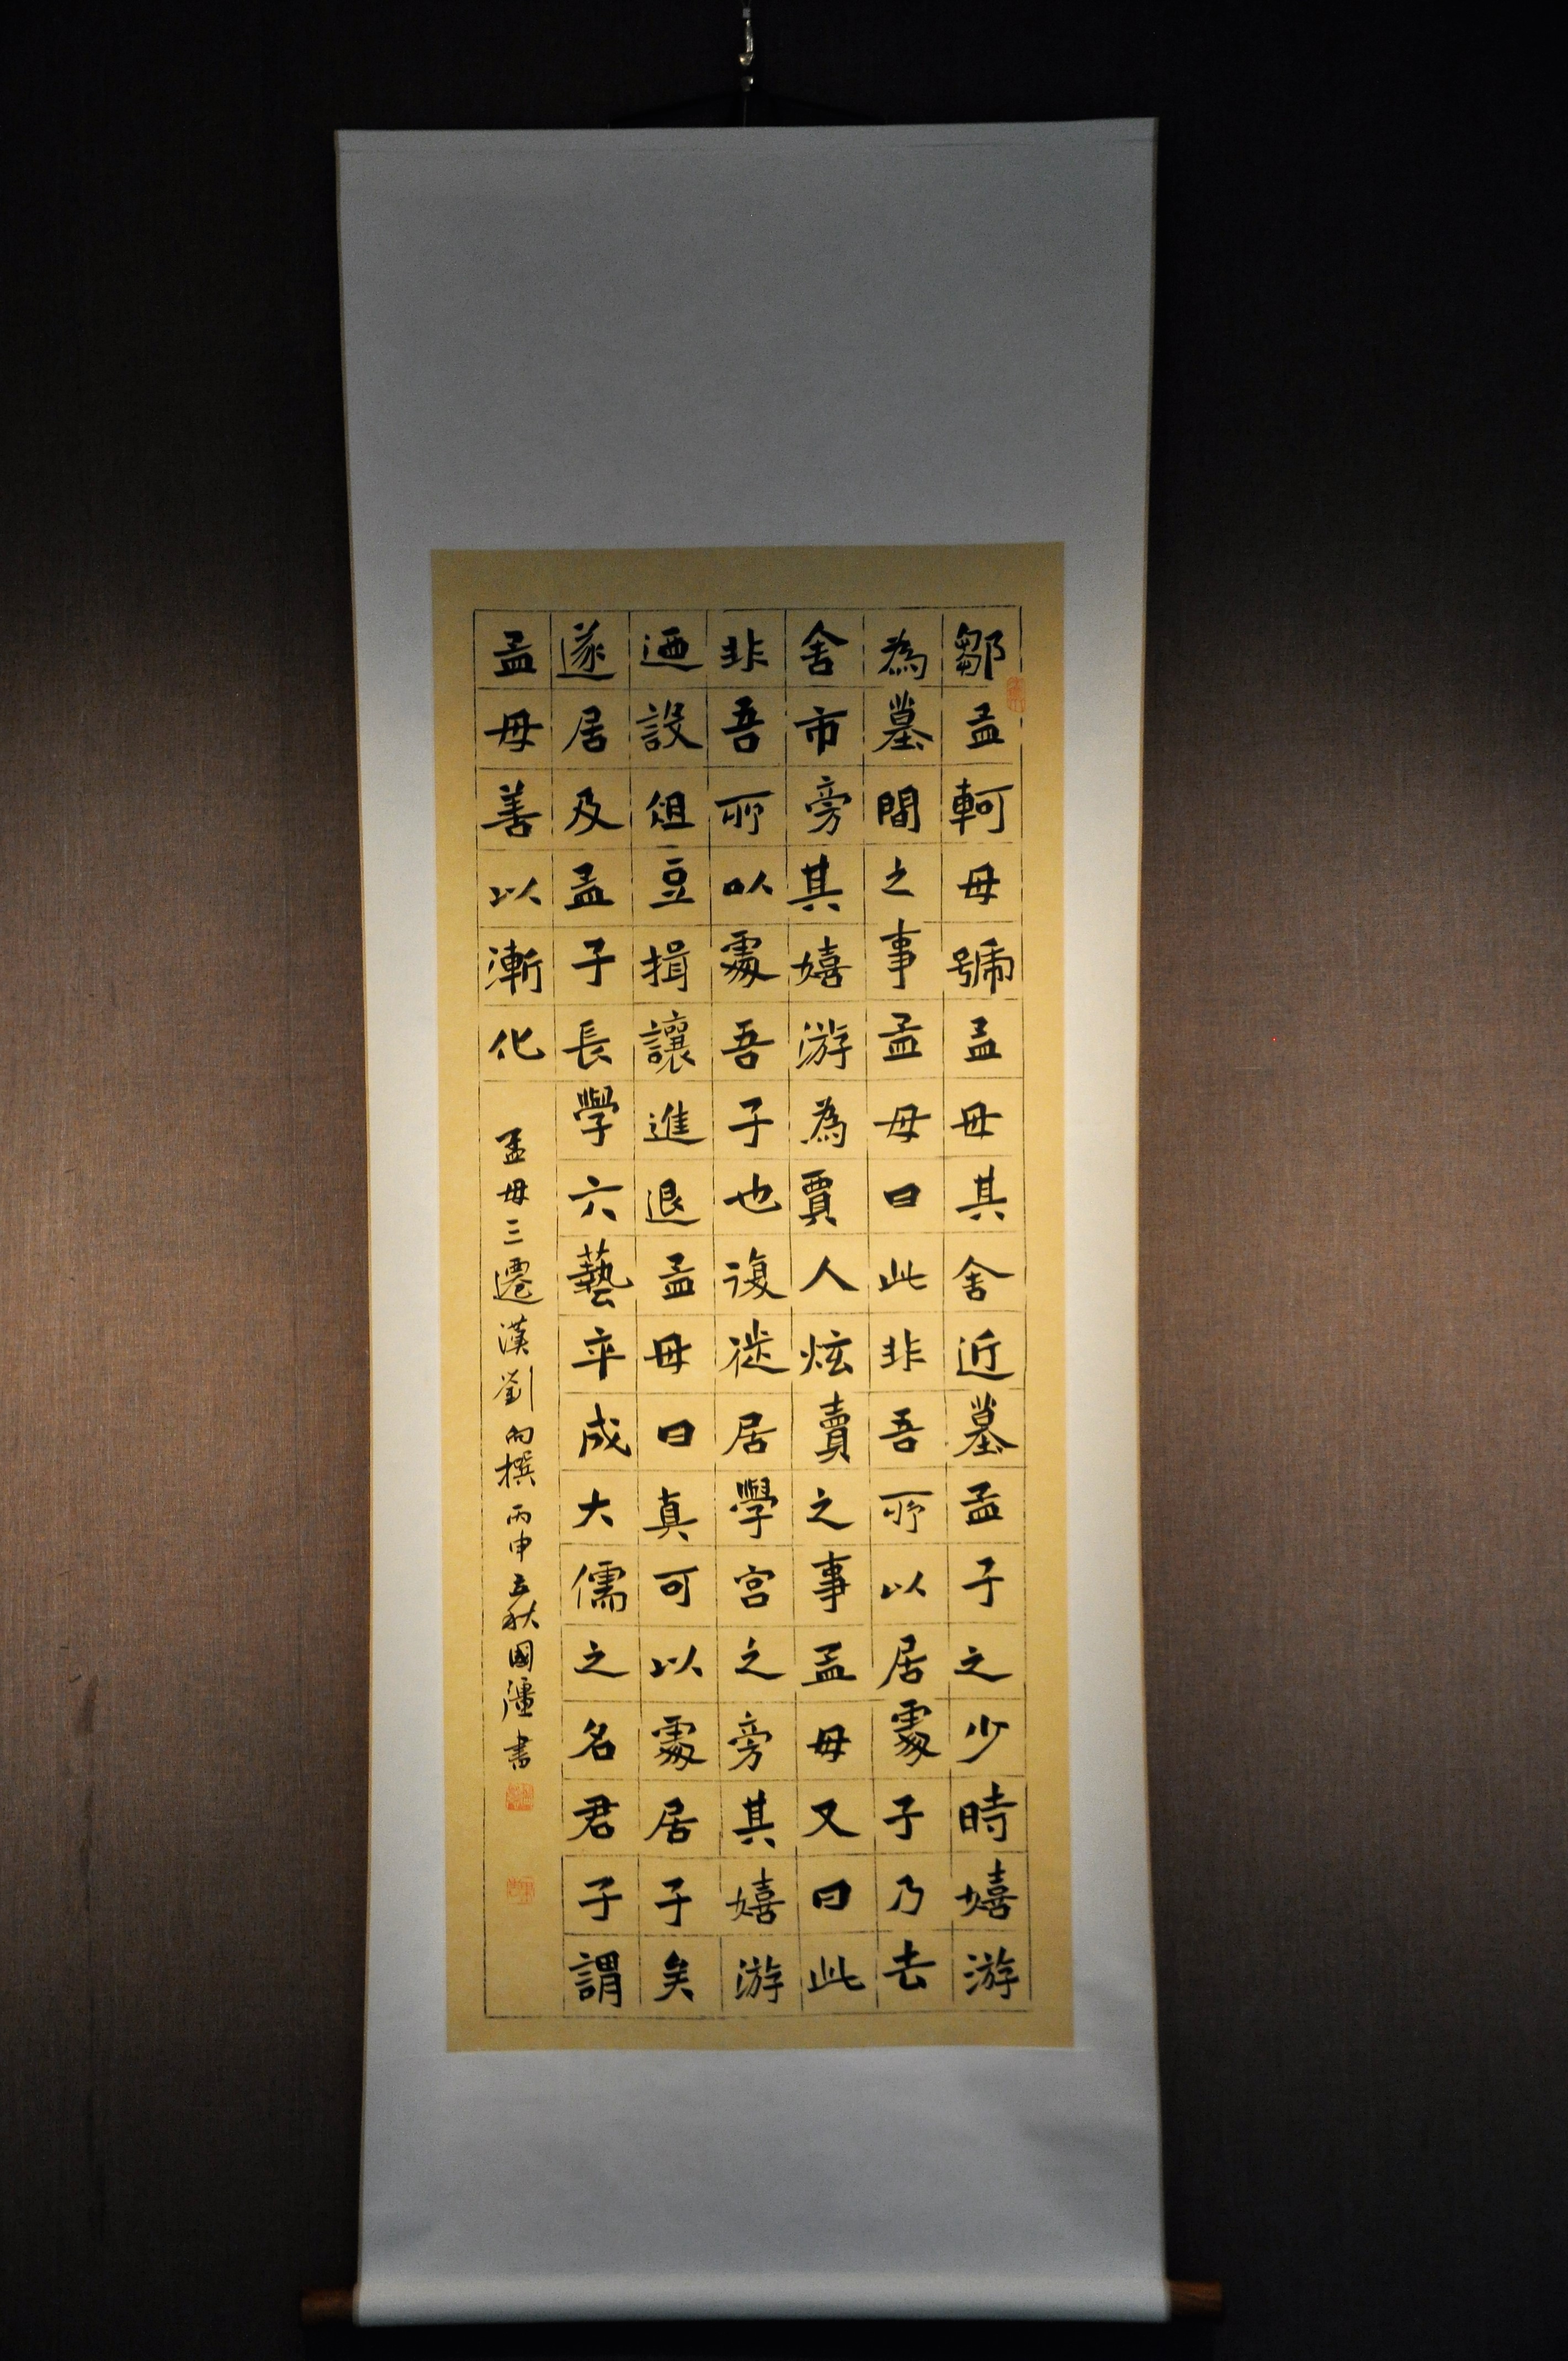 鄒孟軻母號孟母其舍近墓孟子之少時嬉游
為墓間之事孟母曰此非吾所以居處子乃去
舍市旁其嬉游為賈人炫賣之事孟母又曰此
非吾所以處吾子也復徙居學宮之旁其嬉游
迺設俎豆揖讓進退孟母曰真可以處居子矣
遂居及孟子長學六藝卒成大儒之名君子謂
孟母善以漸化
孟母三遷漢劉向撰丙申立秋國滙書